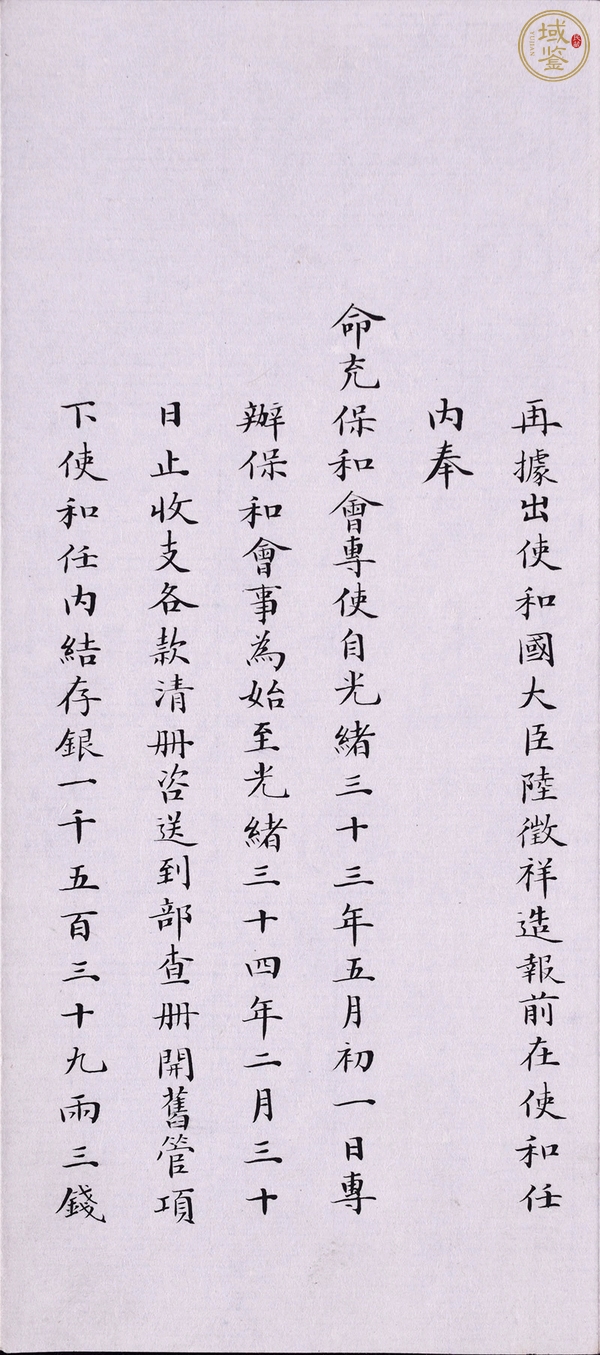 再據出使和國大臣陸徵祥造報前在使和任
內奉
命充保和會專使自光緒三十三年五月初一日專
辦保和會事為始至光緒三十四年二月三十
日止收支各款清冊咨送到部查冊開舊管項
下使和任內結存銀一千五百三十九兩三錢
域鑒
YUJIAN